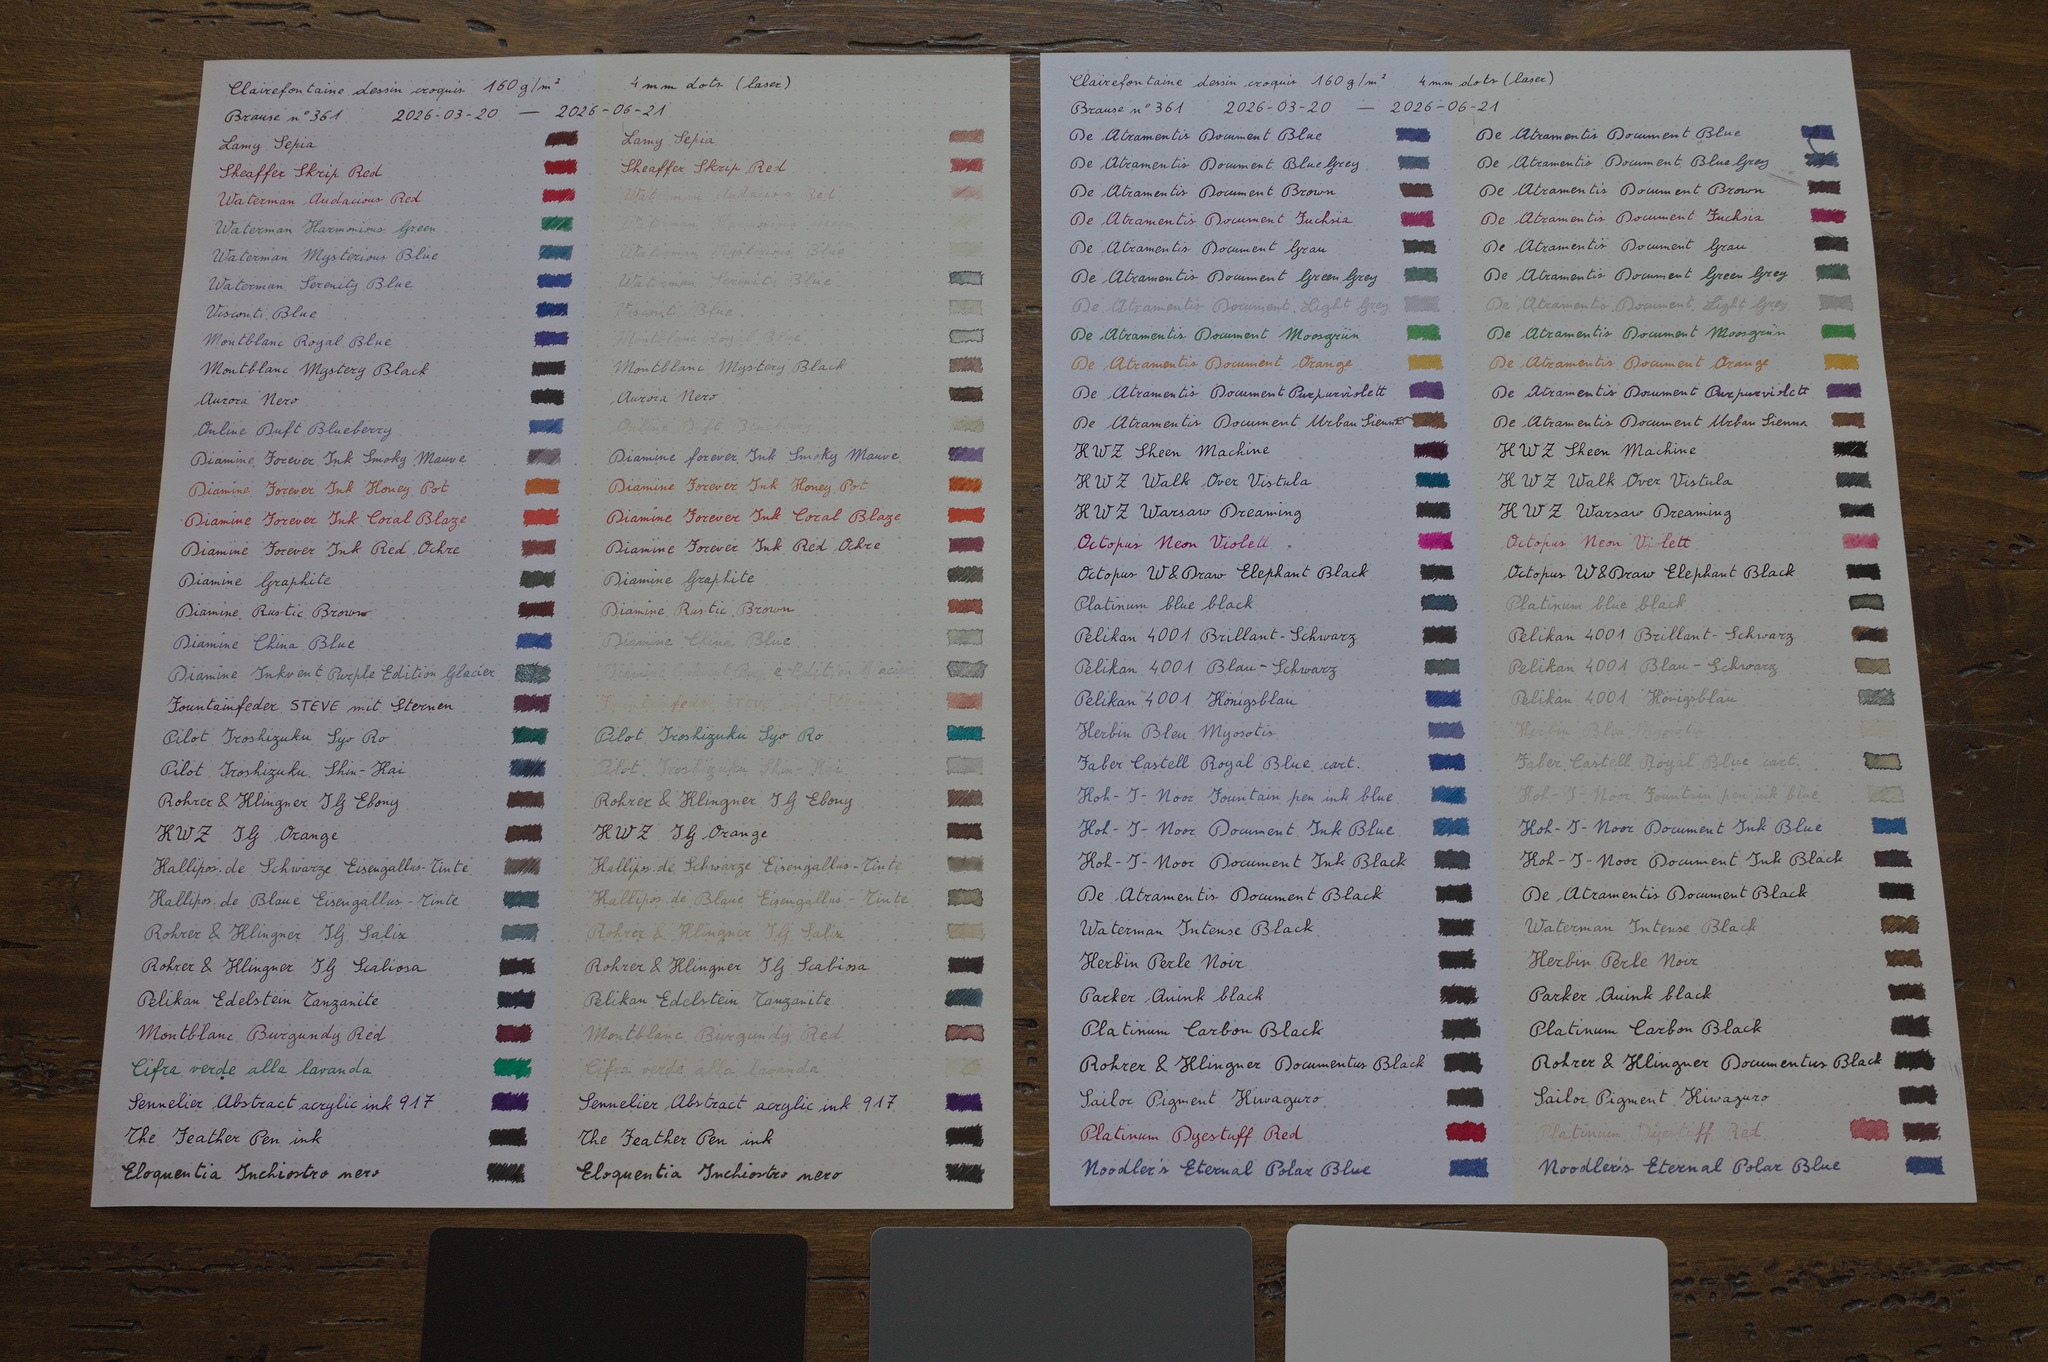 Clairefontaine dessin croquis 160g/m² 4mm dots (laser)
Brause n°361 2026-03-20 — 2026-06-21
Lamy Sepia Lamy Sepia
Sheaffer Skrip Red Sheaffer Skrip Red
Waterman Audacious Red Waterman Audacious Red
Waterman Harmonious Green Waterman
Waterman Mysterious Blue Waterman Mysterious Blue
Waterman Serenity Blue Waterman Serenity Blue
Visconti Blue Visconti Blue
Montblanc Royal Blue Montblanc Royal Blue
Montblanc Mystery Black Montblanc Mystery Black
Aurora Nero Aurora Nero
Online Duft Blueberry Online Duft
Diamine Forever Ink Smoky Mauve Diamine forever Ink Smoky Mauve
Diamine Forever Ink Honey Pot Diamine Forever Ink Honey Pot
Diamine Forever Ink Coral Blaze Diamine Forever Ink Coral Blaze
Diamine Forever Ink Red Ochre Diamine Forever Ink Red Ochre
Diamine Graphite Diamine Graphite
Diamine Rustic Brown Diamine Rustic Brown
Diamine China Blue Diamine China Blue
Diamine Inkvent Purple Edition Glacier Diamine Edition
Fountainfeder STEVE mit Sternen STEVE
Pilot Iroshizuku Syo Ro Pilot Iroshizuku Syo Ro
Pilot Iroshizuku Shin-Kai Pilot Iroshizuku Shin-Kai
Rohrer & Klingner IG Ebony Rohrer & Klingner IG Ebony
KWZ IG Orange KWZ IG Orange
Hallipos.de Schwarze Eisengallus-Tinte Hallipos.de Schwarze Eisengallus-Tinte
Hallipos.de Blaue Eisengallus-Tinte Hallipos.de Blaue Eisengallus-Tinte
Rohrer & Klingner IG Salix Rohrer & Klingner IG Salix
Rohrer & Klingner IG Scabiosa Rohrer & Klingner IG Scabiosa
Pelikan Edelstein Tanzanite Pelikan Edelstein Tanzanite
Montblanc Burgundy Red Montblanc Burgundy Red
Cifra verde alla lavanda Cifra verde alla lavanda
Sennelier Abstract acrylic ink 917 Sennelier Abstract acrylic ink 917
The Feather Pen ink The Feather Pen ink
Eloquentia Inchiostro nero Eloquentia Inchiostro nero
Clairefontaine dessin croquis 160g/m² 4mm dots (laser)
Brause n°361 2026-03-20 — 2026-06-21
De Atramentis Document Blue De Atramentis Document Blue
De Atramentis Document Blue Grey De Atramentis Document Blue Grey
De Atramentis Document Brown De Atramentis Document Brown
De Atramentis Document Fuchsia De Atramentis Document Fuchsia
De Atramentis Document Grau De Atramentis Document Grau
De Atramentis Document Green Grey De Atramentis Document Green Grey
De Atramentis Document Light Grey De Atramentis Document Light Grey
De Atramentis Document Moosgrün De Atramentis Document Moosgrün
De Atramentis Document Orange De Atramentis Document Orange
De Atramentis Document Purpurviolett De Atramentis Document Purpurviolett
De Atramentis Document Urban Sienna De Atramentis Document Urban Sienna
KWZ Sheen Machine KWZ Sheen Machine
KWZ Walk Over Vistula KWZ Walk Over Vistula
KWZ Warsaw Dreaming KWZ Warsaw Dreaming
Octopus Neon Violett Octopus Neon Violett
Octopus W&Draw Elephant Black Octopus W&Draw Elephant Black
Platinum blue black Platinum blue black
Pelikan 4001 Brillant-Schwarz Pelikan 4001 Brillant-Schwarz
Pelikan 4001 Blau-Schwarz Pelikan 4001 Blau-Schwarz
Pelikan 4001 Königsblau Pelikan 4001 Königsblau
Herbin Bleu Myosotis Herbin Bleu Myosotis
Faber Castell Royal Blue cart. Faber Castell Royal Blue cart.
Koh-I-Noor Fountain pen ink blue Koh-I-Noor Fountain pen ink blue
Koh-I-Noor Document Ink Blue Koh-I-Noor Document Ink Blue
Koh-I-Noor Document Ink Black Koh-I-Noor Document Ink Black
De Atramentis Document Black De Atramentis Document Black
Waterman Intense Black Waterman Intense Black
Herbin Perle Noir Herbin Perle Noir
Parker Quink black Parker Quink black
Platinum Carbon Black Platinum Carbon Black
Rohrer & Klingner Documentus Black Rohrer & Klingner Documentus Black
Sailor Pigment Kiwaguro Sailor Pigment Kiwaguro
Platinum Dyestuff Red Platinum Dyestuff Red
Noodler's Eternal Polar Blue Noodler's Eternal Polar Blue